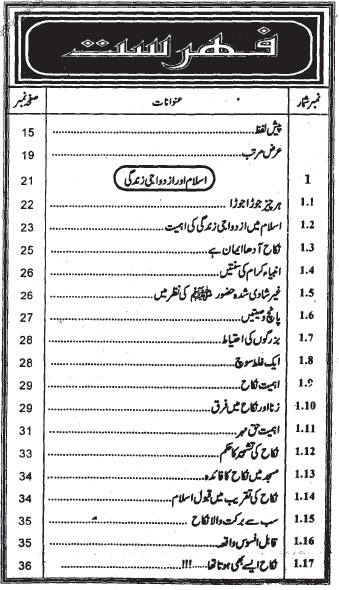 فہرست
نمبر شمار عنوانات صفحہ نمبر
پیش لفظ 15
عرض مرتب 19
1 اسلام اور ازدواجی زندگی 21
1.1 ہر چیز جوڑا جوڑا 22
1.2 اسلام میں ازدواجی زندگی کی اہمیت 23
1.3 نکاح آدھا ایمان ہے 25
1.4 انبیاء کرام کی سنتیں 26
1.5 غیر شادی شدہ حضور ﷺ کی نظر میں 26
1.6 پانچ وصیتیں 27
1.7 بزرگوں کی احتیاط 28
1.8 ایک غلط سوچ 28
1.9 اہمیت نکاح 29
1.10 زنا اور نکاح میں فرق 29
1.11 اہمیت حق مہر 31
1.12 نکاح کی تشہیر کا حکم 33
1.13 مسجد میں نکاح کا فائدہ 34
1.14 نکاح کی تقریب میں قبول اسلام 34
1.15 سب سے برکت والا نکاح 35
1.16 قابل افسوس واقعہ 35
1.17 نکاح ایسے بھی ہوتا تھا......!!! 36